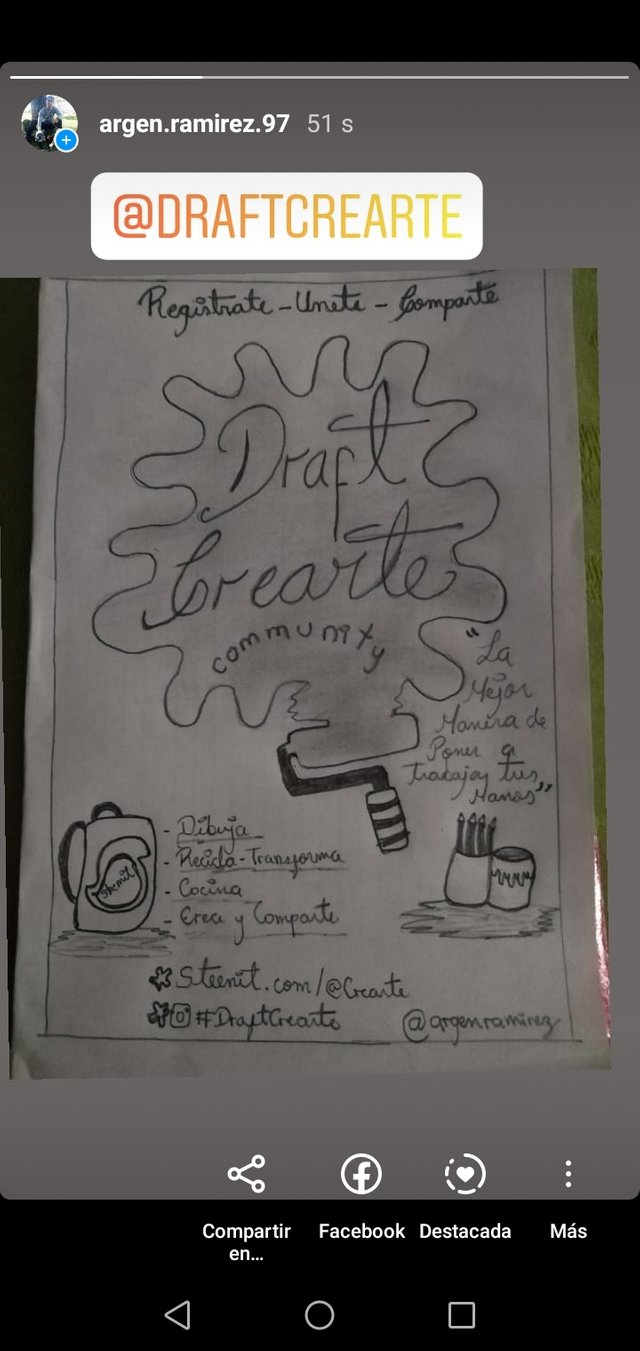 argen.ramirez.97 51 s
@DRAFTCREARTE
Registrate - Unete - Comparte
Draft
Crearte
community
"La
Mejor
Manera de
Poner a
trabajar tus
Manos"
Steemit
- Dibuja
- Recicla - Transforma
- Cocina
- Crea y Comparte
Steemit.com/@Crearte
#DraftCrearte
@argenramirez
Compartir
en...
Facebook
Destacada
Más